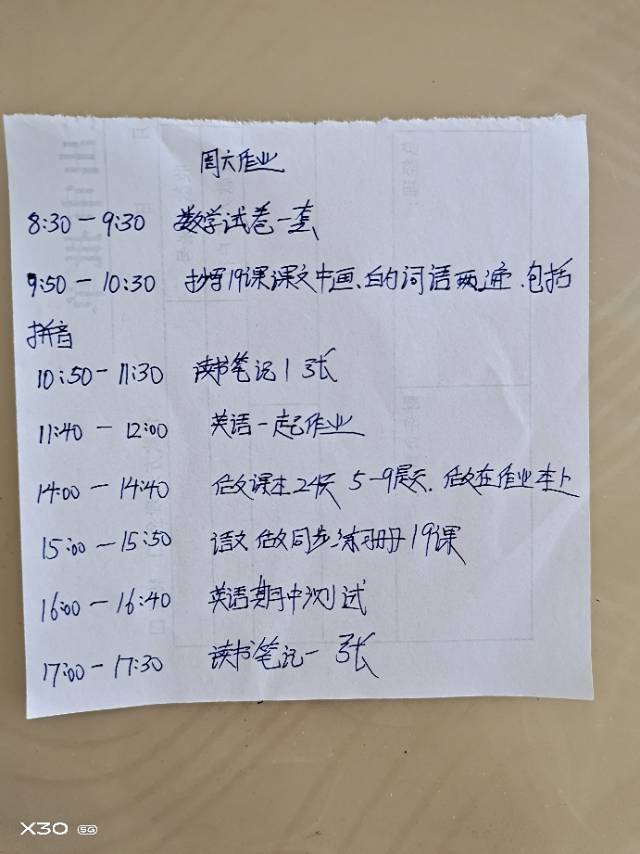 周六作业
8:30-9:30 数学试卷一套
9:50-10:30 抄写19课课文中画、的词语两遍、包括
拼音
10:50-11:30 读书笔记1张
11:40-12:00 英语一起作业
14:00-14:40 做课本24页 5-9题、做在作业本上
15:00-15:50 语文做同步练习册19课
16:00-16:40 英语期中测试
17:00-17:30 读书笔记一张
X30 5G